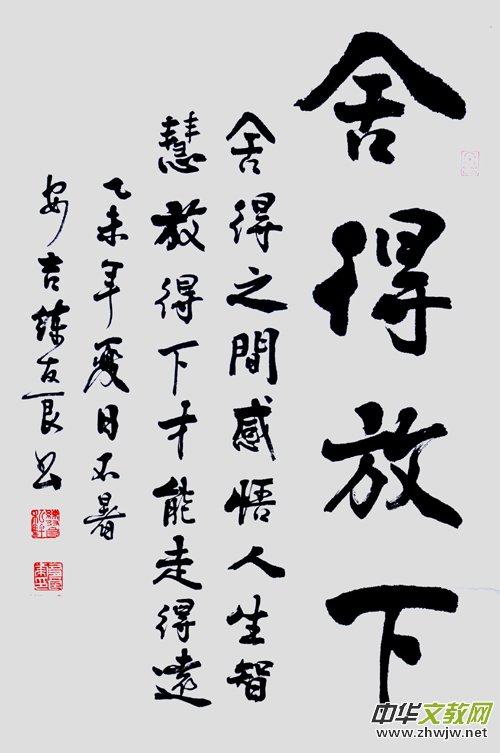 舍得放下
舍得之間感悟人生智
慧放得下才能走得遠
乙未年夏日不暑
安吉陳友良书
中华文教网
www.zhwjw.net